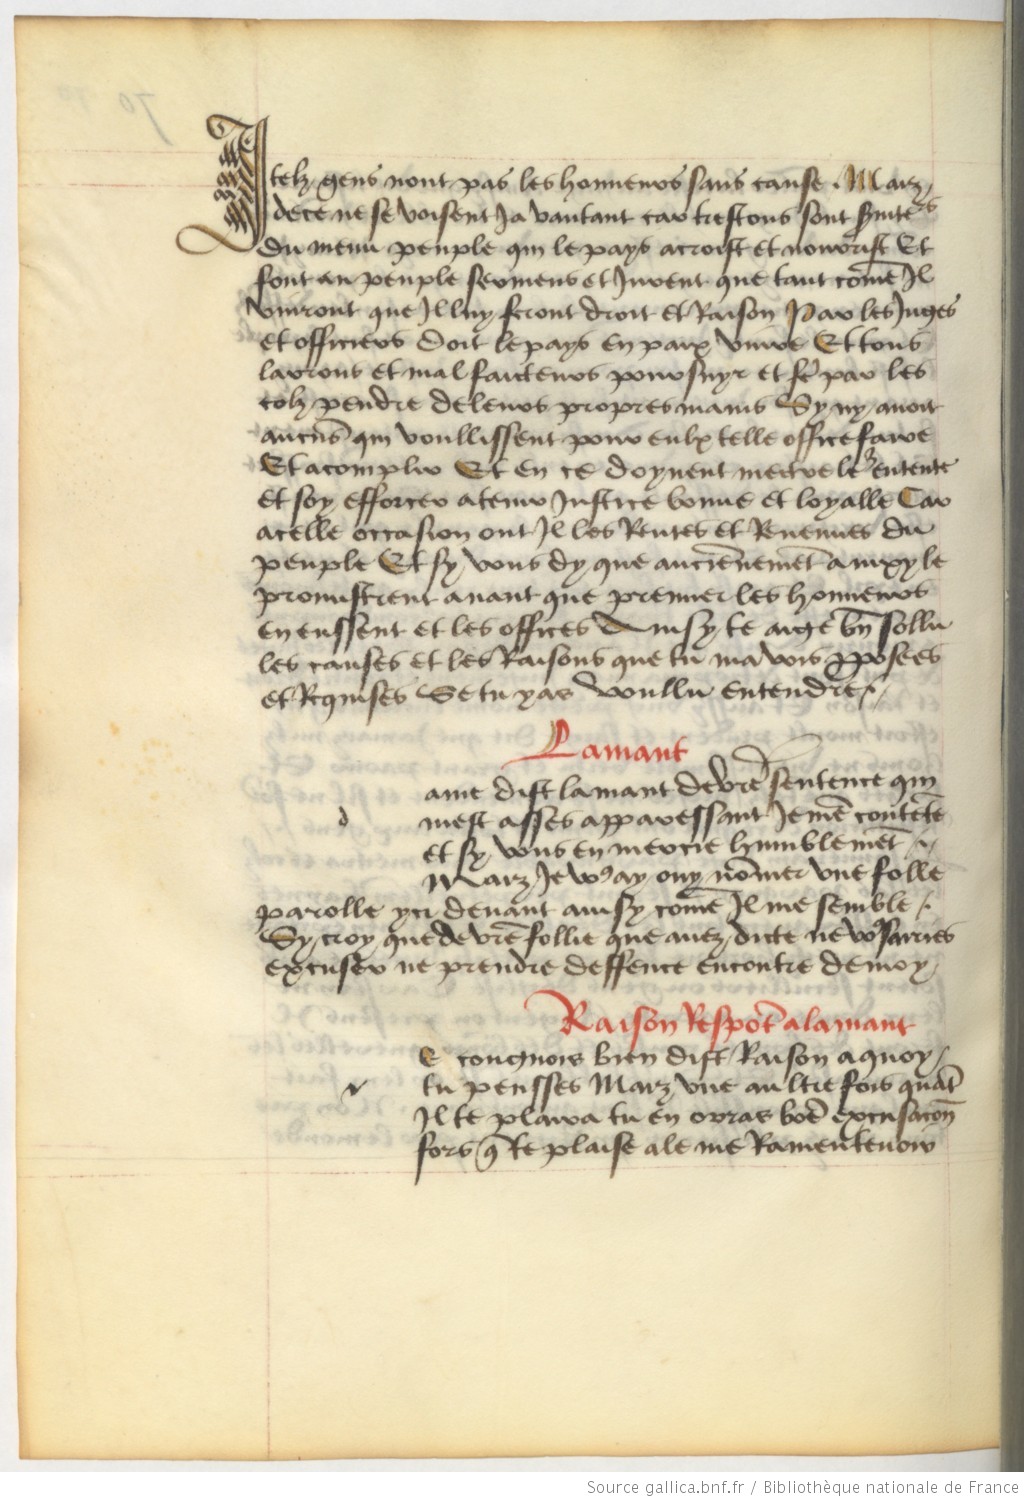 Itelz gens nont pas les honneurs sans cause. Maiz
de ce ne se voisent Ja vantant car trestous sont
du menu peuple qui le pays acroist et nourrist Et
font au peuple sermens et Jurent que tant come Il
vivront que Il luy feront droit et Raison Par les Juges
et officiers Doit le pays en paix vivre Et tous
larrons et malfaicteurs poursuyr et fe par les
colz pendre de leurs propres mains Sy ny avoit
aucuns qui voullissent pour eulx telle office faire
Et acomplir Et en ce doyvent mectre leur entente
et soy efforcer a tenir Justice bonne et loyalle Car
a celle occasion ont Il les Rentes et Revenues du
peuple Et sy vous dy que anciennement ainxy le
promistrent avant que premier les honneurs
en eussent et les offices Ainsy te ay ge bn sollu
les causes et les Raisons que tu mavois pposees
et Requises Se tu yas voullu entendre
Lamant
ame dist lamant de vre sentence qui
d mest asses apparessant Je me contete
et sy vous en mercie humblemet
Maiz Je vous ay ouy nomer une folle
parolle yci devant ainsy come Il me semble
Sy croy que de vre follie que avez dicte ne vous sarries
excuser ne prendre deffence encontre de moy
Raison Respot a lamant
E congnois bien dist Raison a quoy
tu pensses Maiz une aultre fois quat
Il te plaira tu en orras boe excusacon
fors q te plaise a le me Ramentevoir